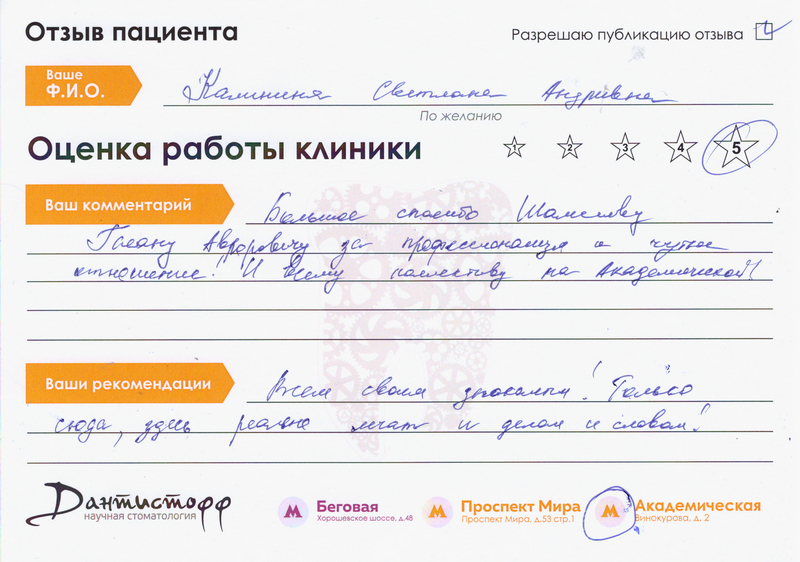 Отзыв пациента
Разрешаю публикацию отзыва
Ваше
Ф.И.О.
Калинина Светлана
По желанию
Оценка работы клиники
1 2 3 4 5
Ваш комментарий
Большое спасибо
за профессионализм и чуткое
отношение! И всему на Академической!
Ваши рекомендации
Всем своим знакомым! Только
сюда, здесь реально лечат и делом и словом!
Дантистофф
научная стоматология
Беговая
Хорошевское шоссе, д.48
Проспект Мира
Проспект Мира, д.53 стр.1
Академическая
Винокурова, д. 2